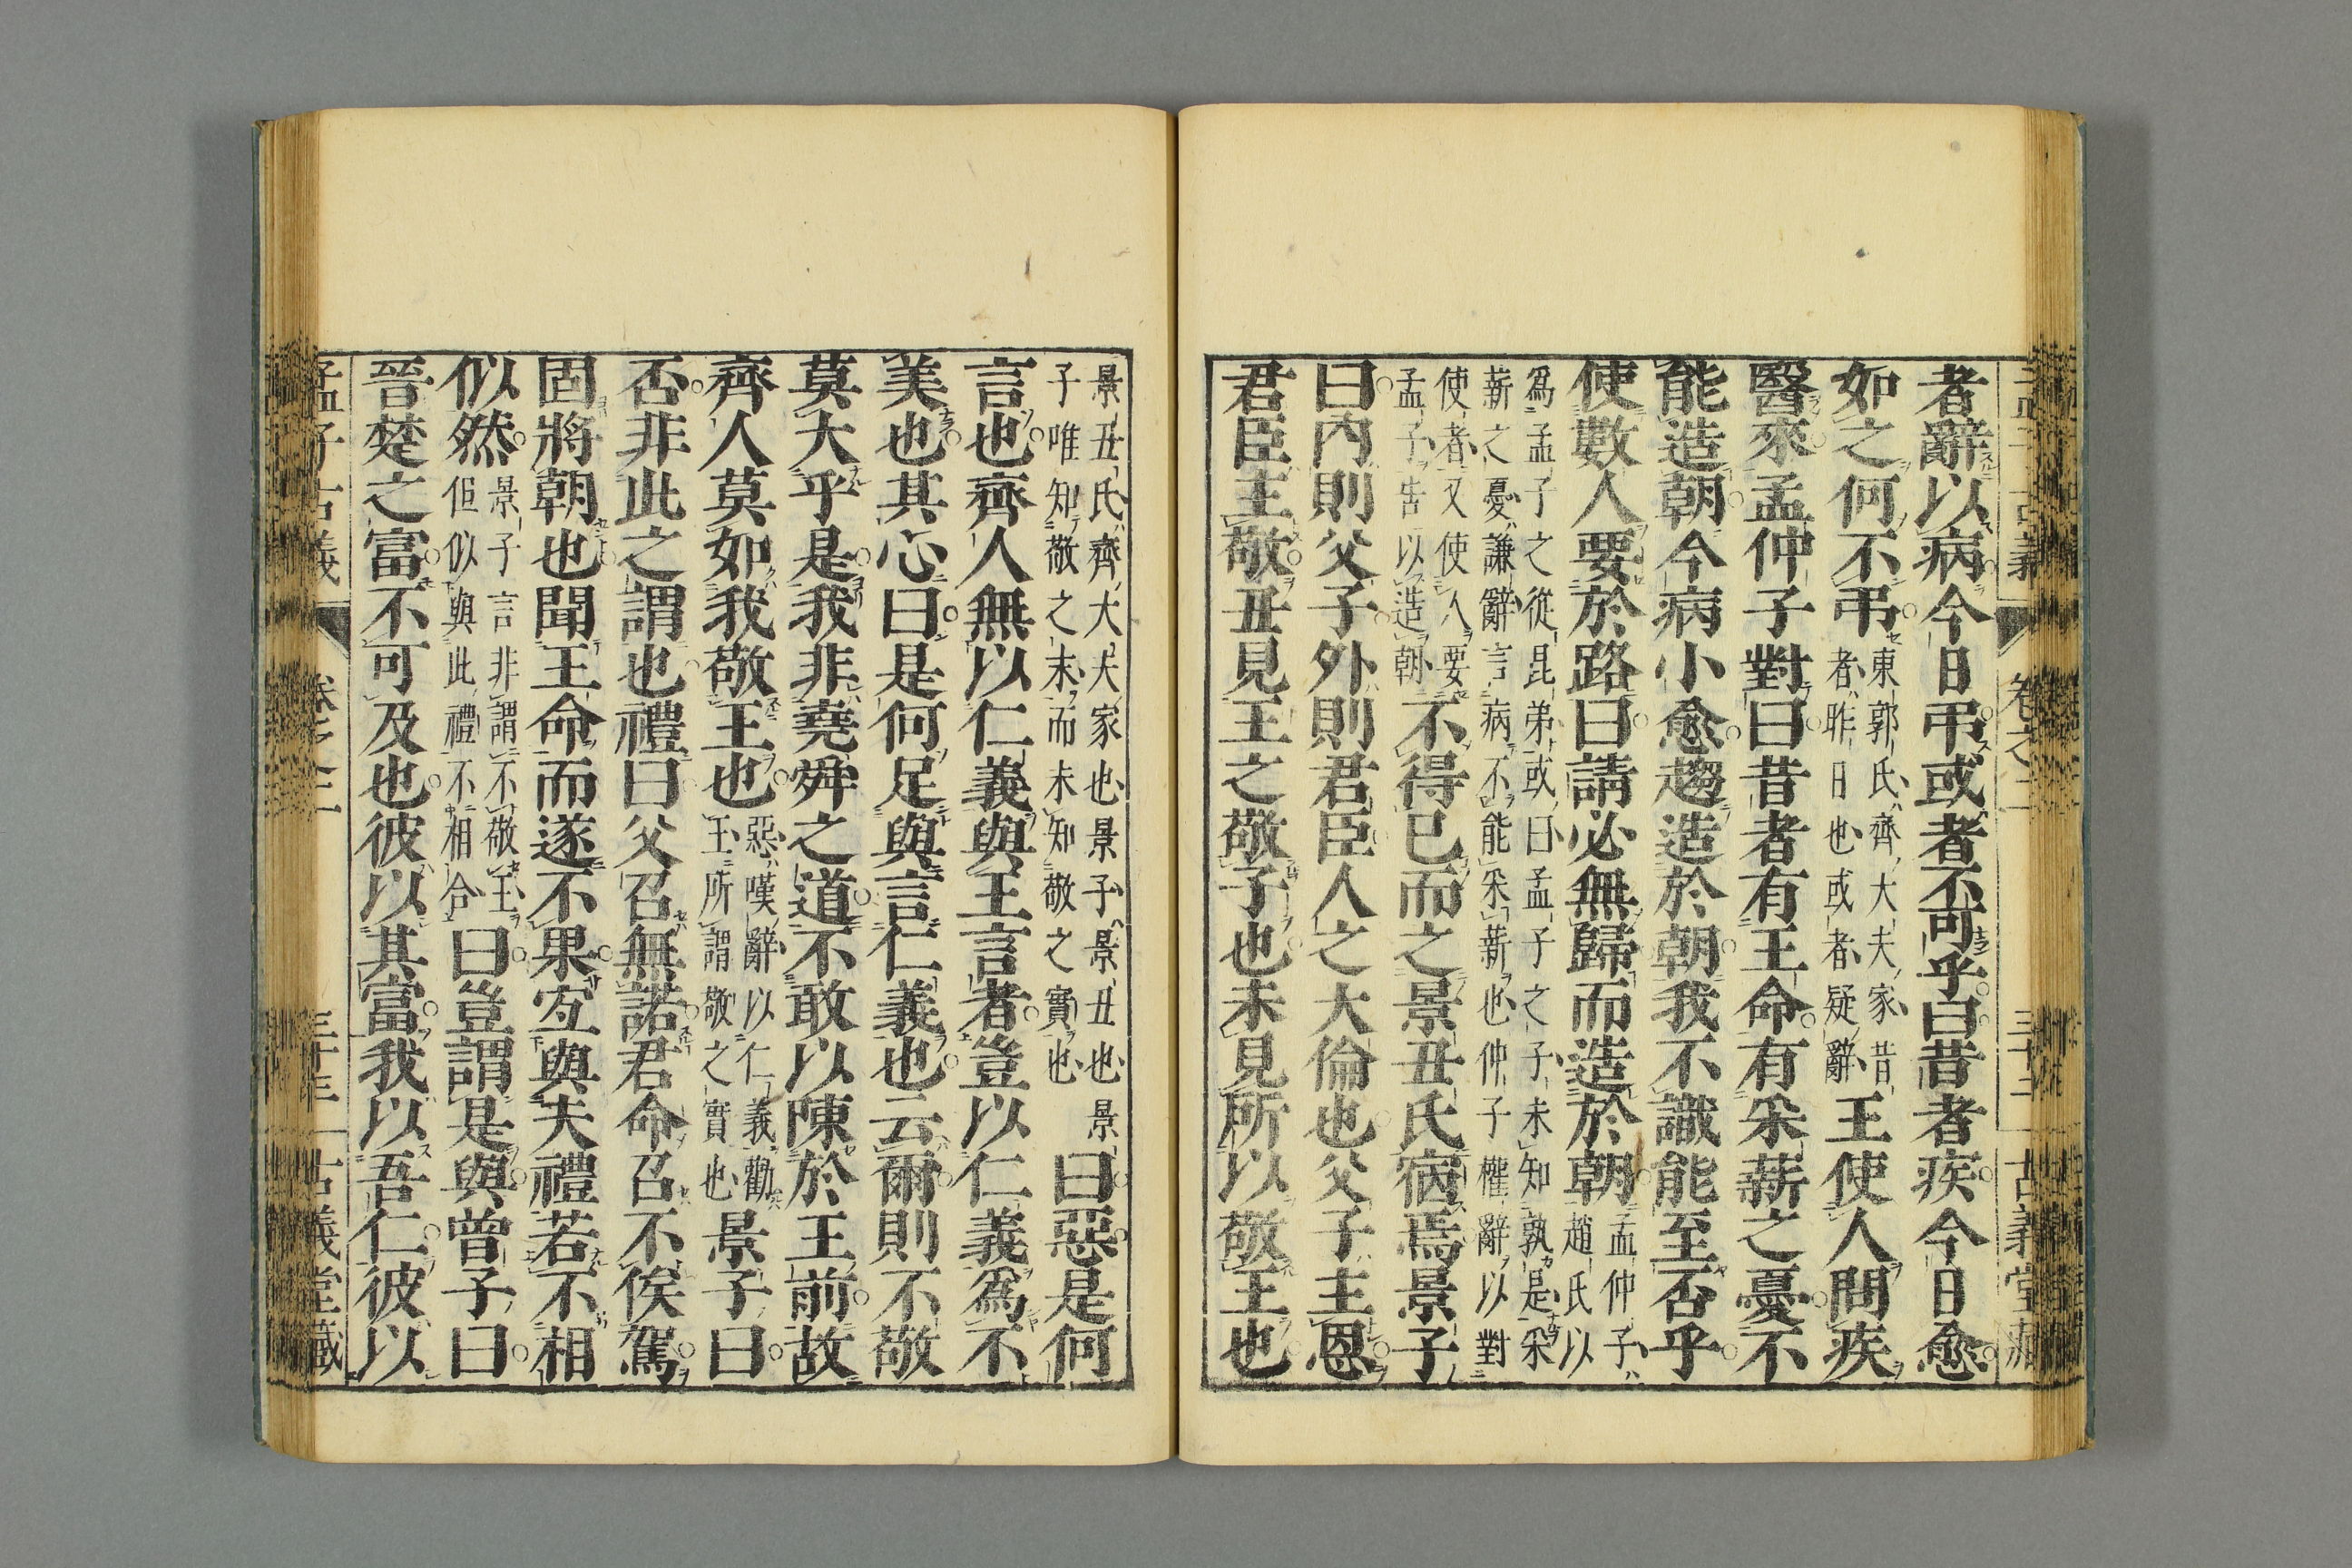 者辭以病今日弔或者不可乎曰昔者疾今日愈
如之何不弔東郭氏齊大夫家昔
者昨日也或者疑辭王使人問疾
醫來孟仲子對曰昔者有王命有采薪之憂不
能造朝今病小愈趨造於朝我不識能至否乎
使數人要於路曰請必無歸而造於朝孟仲子
趙氏以
爲孟子之從昆弟或曰孟子之子未知孰是采
薪之憂謙辭言病不能采薪也仲子權辭以對
使者又使人要
孟子告以造朝不得已而之景丑氏宿焉景子
曰內則父子外則君臣人之大倫也父子主恩
君臣主敬丑見王之敬子也未見所以敬王也
景丑氏齊大夫家也景子景丑也景
子唯知敬之末而未知敬之實也曰惡是何
言也齊人無以仁義與王言者豈以仁義爲不
美也其心曰是何足與言仁義也云爾則不敬
莫大乎是我非堯舜之道不敢以陳於王前故
齊人莫如我敬王也惡嘆辭以仁義勸
王所謂敬之實也景子曰
否非此之謂也禮曰父召無諾君命召不俟駕
固將朝也聞王命而遂不果宜與夫禮若不相
似然景子言非謂不敬王
但似與此禮不相合曰豈謂是與曾子曰
晉楚之富不可及也彼以其富我以吾仁彼以
孟子古義 卷之二 三十三 古義堂藏